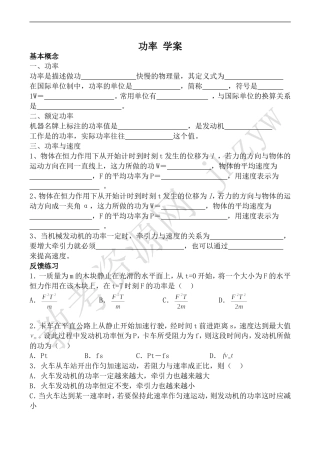 功率 学案
基本概念
一、功率
功率是描述做功____________快慢的物理量，其定义式为____________
在国际单位制中，功率的单位是____________，简称________，符号是________
1W＝____________。常用单位有____________，与国际单位的换算关系
是____________________。
二、额定功率
机器名牌上标注的功率值是____________，是发动机____________
工作是的功率。实际功率往往____________这个值。
三、功率与速度
1、物体在恒力作用下从开始计时到时刻 t 发生的位移为 l ，若力的方向与物体的
运动方向在同一直线上，这力所做的功 W＝____________，物体的平均速度为
____________，F 的平均功率为 P＝____________，用速度表示为
____________。
2、物体在恒力作用下从开始计时到时刻 t 发生的位移为 l，若力的方向与物体的
运动方向成一夹角 α，这力所做的功 W＝____________，物体的平均速度为
____________，F 的平均功率为 P＝____________，用速度表示为
____________。
3、当机械发动机的功率一定时，牵引力与速度的关系为____________，
要增大牵引力就必须____________，也可以通过____________
来提高速度。
反馈练习
1．一质量为 m 的木块静止在光滑的水平面上，从 t=0 开始，将一个大小为 F 的水平
恒力作用在该木块上，在 t=T 时刻 F 的功率是（ ）
A．F²T/m B．F²T²/m C．F²T/2m D．F²T²/2m
2．卡车在平直公路上从静止开始加速行驶，经时间 t 前进距离 s，速度达到最大值
vₘ。设此过程中发动机功率恒为 P，卡车所受阻力为 f，则这段时间内，发动机所做
的功为（ ）
A．Pt B．fs C．Pt－fs D．fvₘt
3．火车从车站开出作匀加速运动，若阻力与速率成正比，则（ ）
A．火车发动机的功率一定越来越大，牵引力也越来越大
B．火车发动机的功率恒定不变，牵引力也越来越小
C．当火车达到某一速率时，若要保持此速率作匀速运动，则发动机的功率这时应减
小